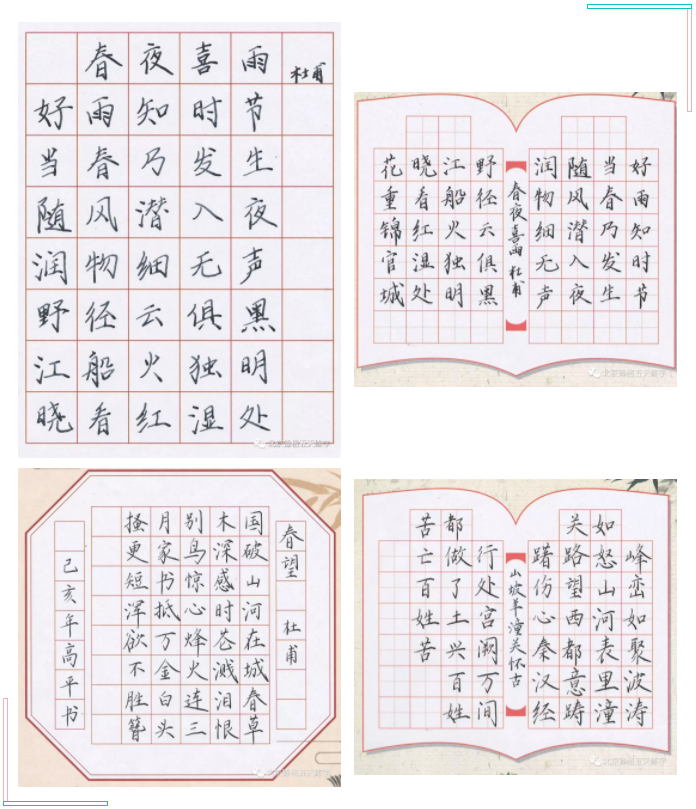 春夜喜雨 杜甫
好雨知时节
当春乃发生
随风潜入夜
润物细无声
野径云俱黑
江船火独明
晓看红湿处
好雨知时节
当春乃发生
随风潜入夜
润物细无声
春夜喜雨 杜甫
野径云俱黑
江船火独明
晓看红湿处
花重锦官城
春望 杜甫
国破山河在城春草
木深感时花溅泪恨
别鸟惊心烽火连三
月家书抵万金白头
搔更短浑欲不胜簪
己亥年高平书
峰峦如聚波涛
如怒山河表里潼
关路望西都意踌
躇伤心秦汉经
山坡羊潼关怀古
行处宫阙万间
都做了土兴百姓
苦亡百姓苦